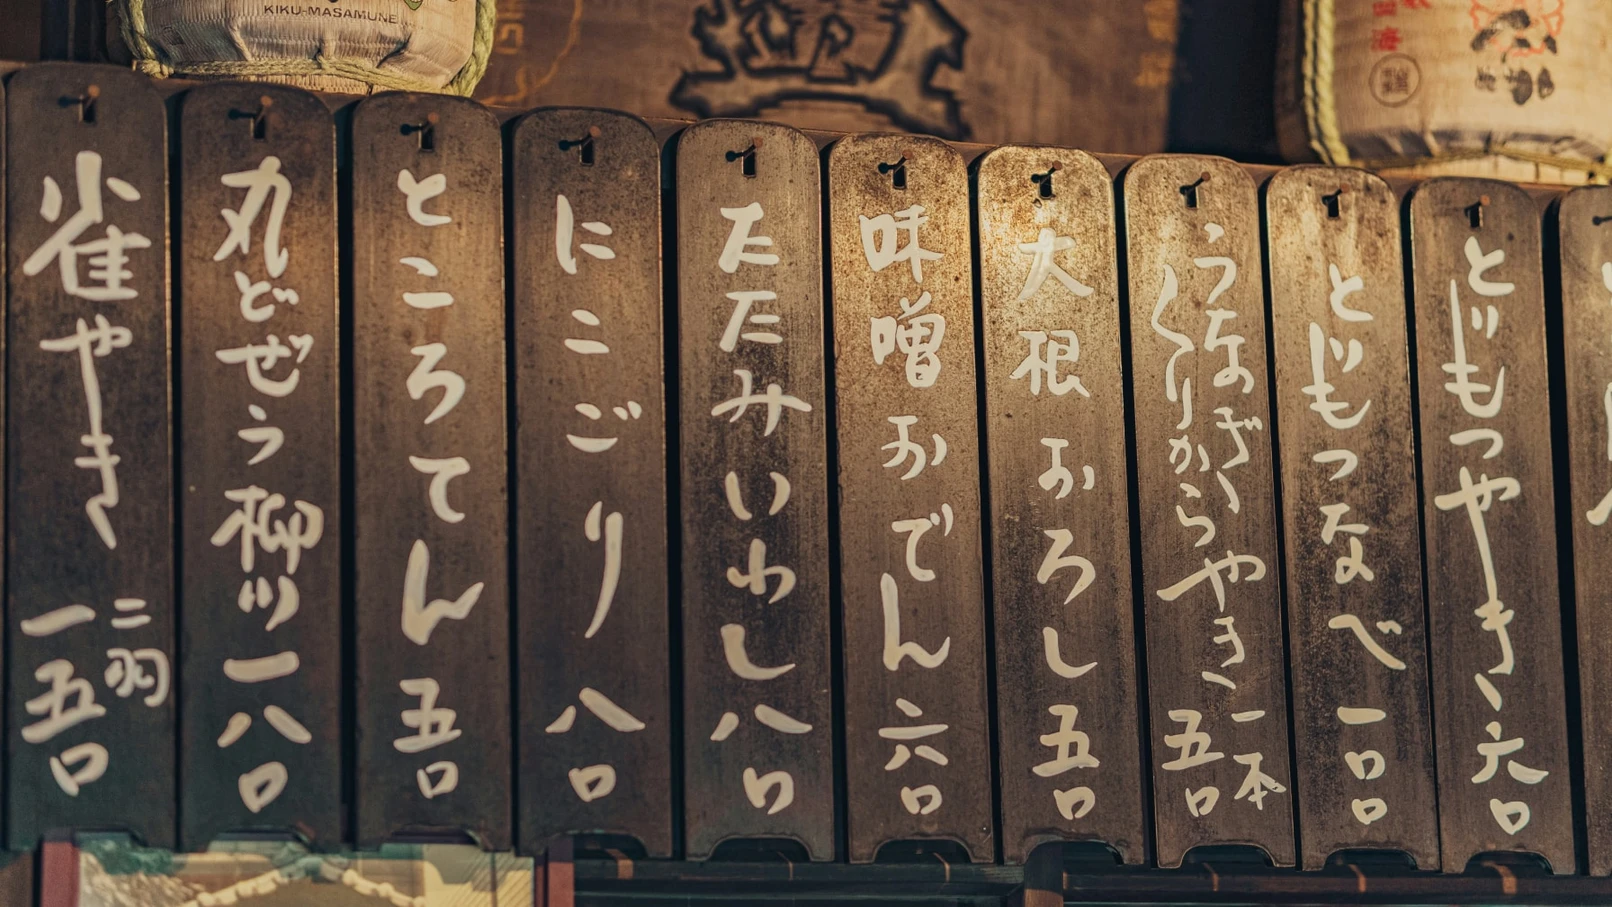 KIKU-MASAMUNE
とじもつやき、六〇
とじもつなべ一〇〇
うなぎ、くりからやき、一本五〇
大根おろし五〇
味噌おでん六〇
たたみいわし八〇
にこごり八〇
ところてん五〇
丸どぜう柳川一八〇
雀やき二羽一五〇